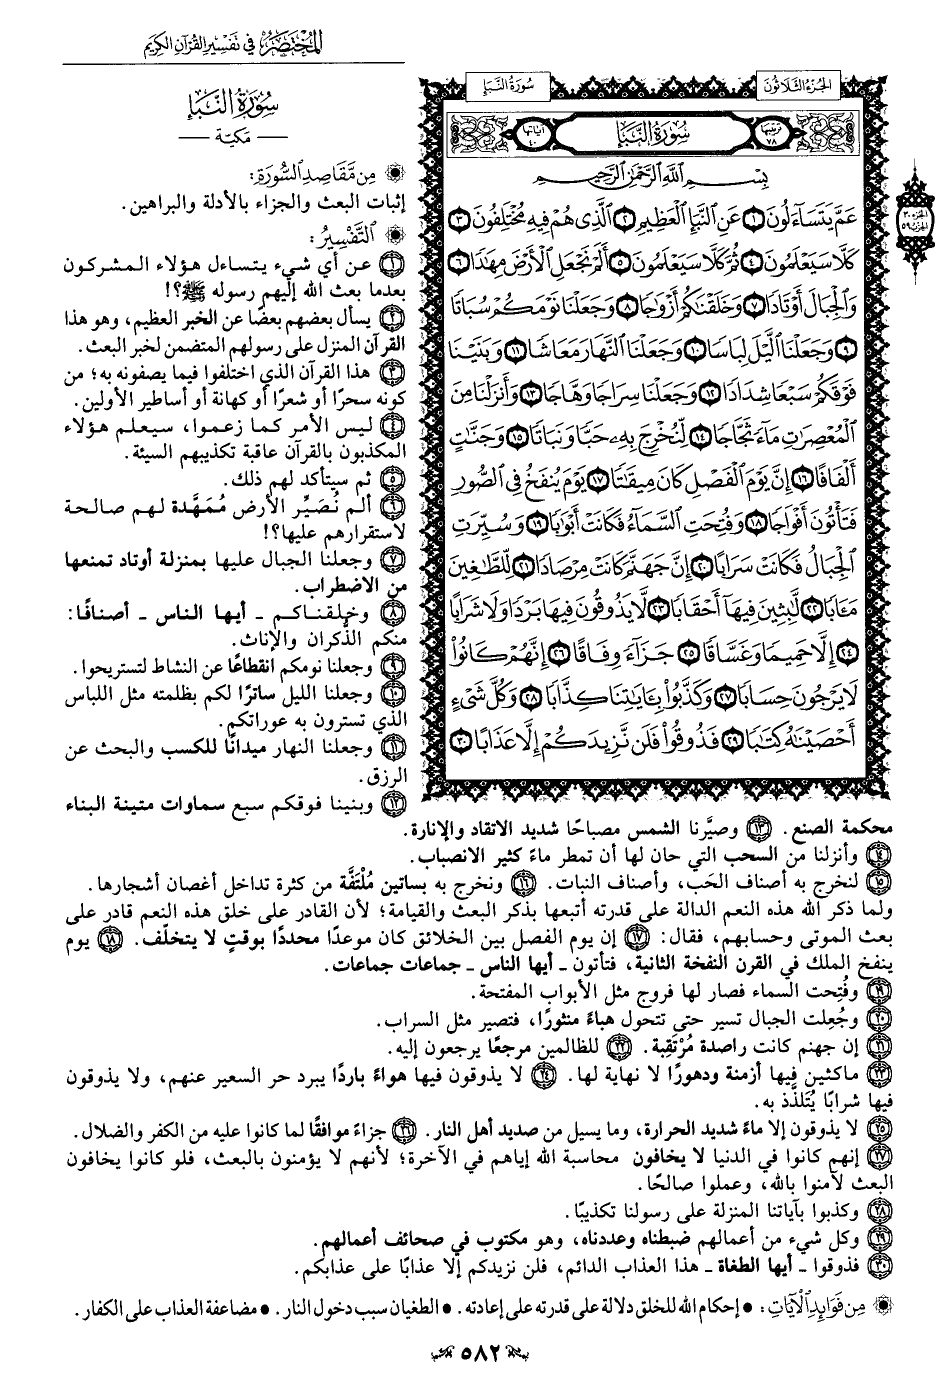 المختصر في تفسير القرآن الكريم
الجزء الثلاثون
سورة النبإ
ترتيبها ٧٨
سورة النبإ
آياتها ٤٠
بسم الله الرحمن الرحيم
عم يتساءلون ١ عن النبإ العظيم ٢ الذي هم فيه مختلفون ٣
كلا سيعلمون ٤ ثم كلا سيعلمون ٥ ألم نجعل الأرض مهادا ٦
والجبال أوتادا ٧ وخلقناكم أزواجا ٨ وجعلنا نومكم سباتا
٩ وجعلنا الليل لباسا ١٠ وجعلنا النهار معاشا ١١ وبنينا
فوقكم سبعا شدادا ١٢ وجعلنا سراجا وهاجا ١٣ وأنزلنا من
المعصرات ماء ثجاجا ١٤ لنخرج به حبا ونباتا ١٥ وجنات
ألفافا ١٦ إن يوم الفصل كان ميقاتا ١٧ يوم ينفخ في الصور
فتأتون أفواجا ١٨ وفتحت السماء فكانت أبوابا ١٩ وسيرت
الجبال فكانت سرابا ٢٠ إن جهنم كانت مرصادا ٢١ للطاغين
مآبا ٢٢ لابثين فيها أحقابا ٢٣ لا يذوقون فيها بردا ولا شرابا
٢٤ إلا حميما وغساقا ٢٥ جزاء وفاقا ٢٦ إنهم كانوا
لا يرجون حسابا ٢٧ وكذبوا بآياتنا كذابا ٢٨ وكل شيء
أحصيناه كتابا ٢٩ فذوقوا فلن نزيدكم إلا عذابا ٣٠
الجزء ٣٠
الحزب ٥٩
سورة النبإ
— مكية —
من مقاصد السورة:
إثبات البعث والجزاء بالأدلة والبراهين.
التفسير:
١ عن أي شيء يتساءل هؤلاء المشركون
بعدما بعث الله إليهم رسوله ﷺ؟!
٢ يسأل بعضهم بعضًا عن الخبر العظيم، وهو هذا
القرآن المنزل على رسولهم المتضمن لخبر البعث.
٣ هذا القرآن الذي اختلفوا فيما يصفونه به؛ من
كونه سحرًا أو شعرًا أو كهانة أو أساطير الأولين.
٤ ليس الأمر كما زعموا، سيعلم هؤلاء
المكذبون بالقرآن عاقبة تكذيبهم السيئة.
٥ ثم سيتأكد لهم ذلك.
٦ ألم نُصَيِّر الأرض مُمَهَّدة لهم صالحة
لاستقرارهم عليها؟!
٧ وجعلنا الجبال عليها بمنزلة أوتاد تمنعها
من الاضطراب.
٨ وخلقناكم ـ أيها الناس ـ أصنافًا:
منكم الذُّكران والإناث.
٩ وجعلنا نومكم انقطاعًا عن النشاط لتستريحوا.
١٠ وجعلنا الليل ساترًا لكم بظلمته مثل اللباس
الذي تسترون به عوراتكم.
١١ وجعلنا النهار ميدانًا للكسب والبحث عن
الرزق.
١٢ وبنينا فوقكم سبع سماوات متينة البناء
محكمة الصنع. ١٣ وصيَّرنا الشمس مصباحًا شديد الاتقاد والإنارة.
١٤ وأنزلنا من السحب التي حان لها أن تمطر ماءً كثير الانصباب.
١٥ لنخرج به أصناف الحَب، وأصناف النبات. ١٦ ونخرج به بساتين مُلْتَفَّة من كثرة تداخل أغصان أشجارها.
ولما ذكر الله هذه النعم الدالة على قدرته أتبعها بذكر البعث والقيامة؛ لأن القادر على خلق هذه النعم قادر على
بعث الموتى وحسابهم، فقال: ١٧ إن يوم الفصل بين الخلائق كان موعدًا محددًا بوقتٍ لا يتخلَّف. ١٨ يوم
ينفخ الملك في القرن النفخة الثانية، فتأتون ـ أيها الناس ـ جماعات جماعات.
١٩ وفُتِحت السماء فصار لها فروج مثل الأبواب المفتحة.
٢٠ وجُعِلت الجبال تسير حتى تتحول هباءً منثورًا، فتصير مثل السراب.
٢١ إن جهنم كانت راصدة مُرْتَقِبة. ٢٢ للظالمين مرجعًا يرجعون إليه.
٢٣ ماكثين فيها أزمنة ودهورًا لا نهاية لها. ٢٤ لا يذوقون فيها هواءً باردًا يبرد حر السعير عنهم، ولا يذوقون
فيها شرابًا يُتَلذَّذ به.
٢٥ لا يذوقون إلا ماءً شديد الحرارة، وما يسيل من صديد أهل النار. ٢٦ جزاءً موافقًا لما كانوا عليه من الكفر والضلال.
٢٧ إنهم كانوا في الدنيا لا يخافون محاسبة الله إياهم في الآخرة؛ لأنهم لا يؤمنون بالبعث، فلو كانوا يخافون
البعث لآمنوا بالله، وعملوا صالحًا.
٢٨ وكذبوا بآياتنا المنزلة على رسولنا تكذيبًا.
٢٩ وكل شيء من أعمالهم ضبطناه وعددناه، وهو مكتوب في صحائف أعمالهم.
٣٠ فذوقوا ـ أيها الطغاة ـ هذا العذاب الدائم، فلن نزيدكم إلا عذابًا على عذابكم.
من فوائد الآيات: • إحكام الله للخلق دلالة على قدرته على إعادته. • الطغيان سبب دخول النار. • مضاعفة العذاب على الكفار.
٥٨٢